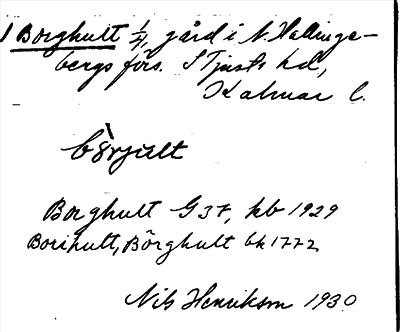 1 Borghult 1/4, gård i N. Hallinge-
bergs förs. S Tjusts hd,
Kalmar l.
bòrjult
Borghult G 37, kb 1929
Borihult, Börghult bk 1772
Nils Henrikson 1930